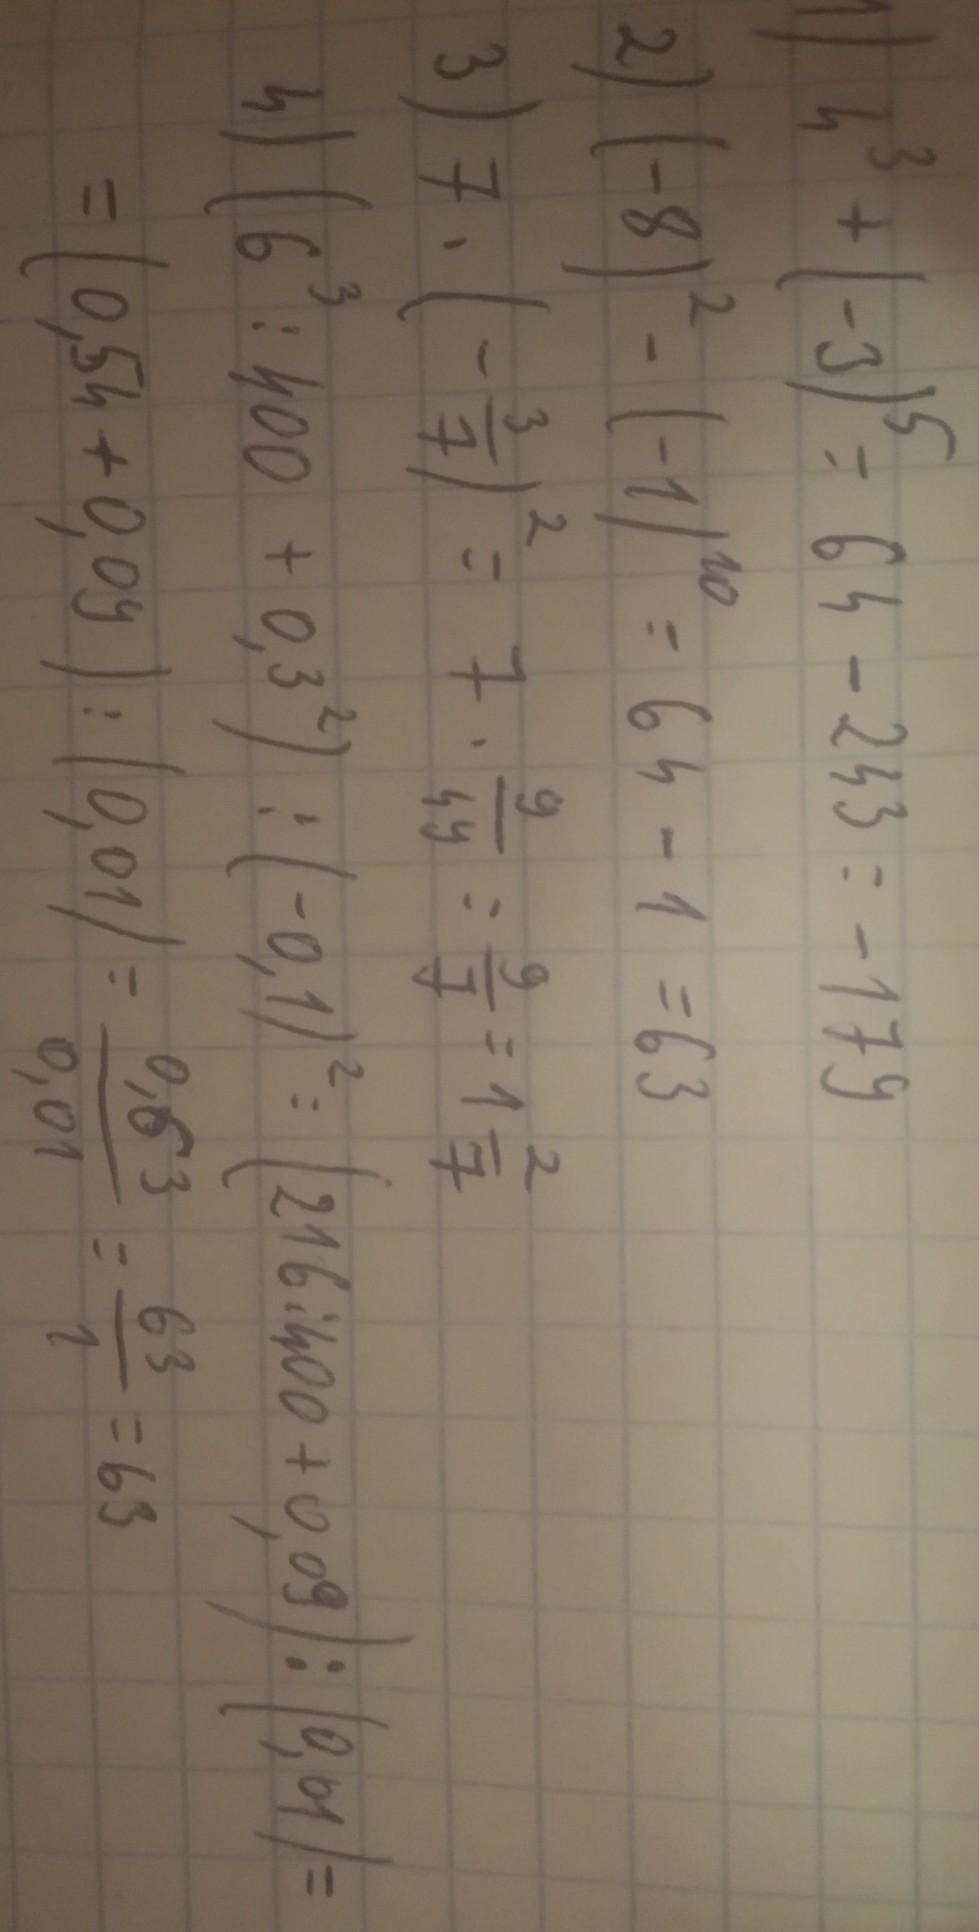 1) 4³ + (-3)⁵ = 64 - 243 = -179
2) (-8)² - (-1)¹⁰ = 64 - 1 = 63
3) 7 · (-3/7)² = 7 · 9/49 = 9/7 = 1 2/7
4) (6³ : 400 + 0,3²) : (-0,1)² = (216:400 + 0,09) : (0,01) =
= (0,54 + 0,09) : (0,01) = 0,63/0,01 = 63/1 = 63